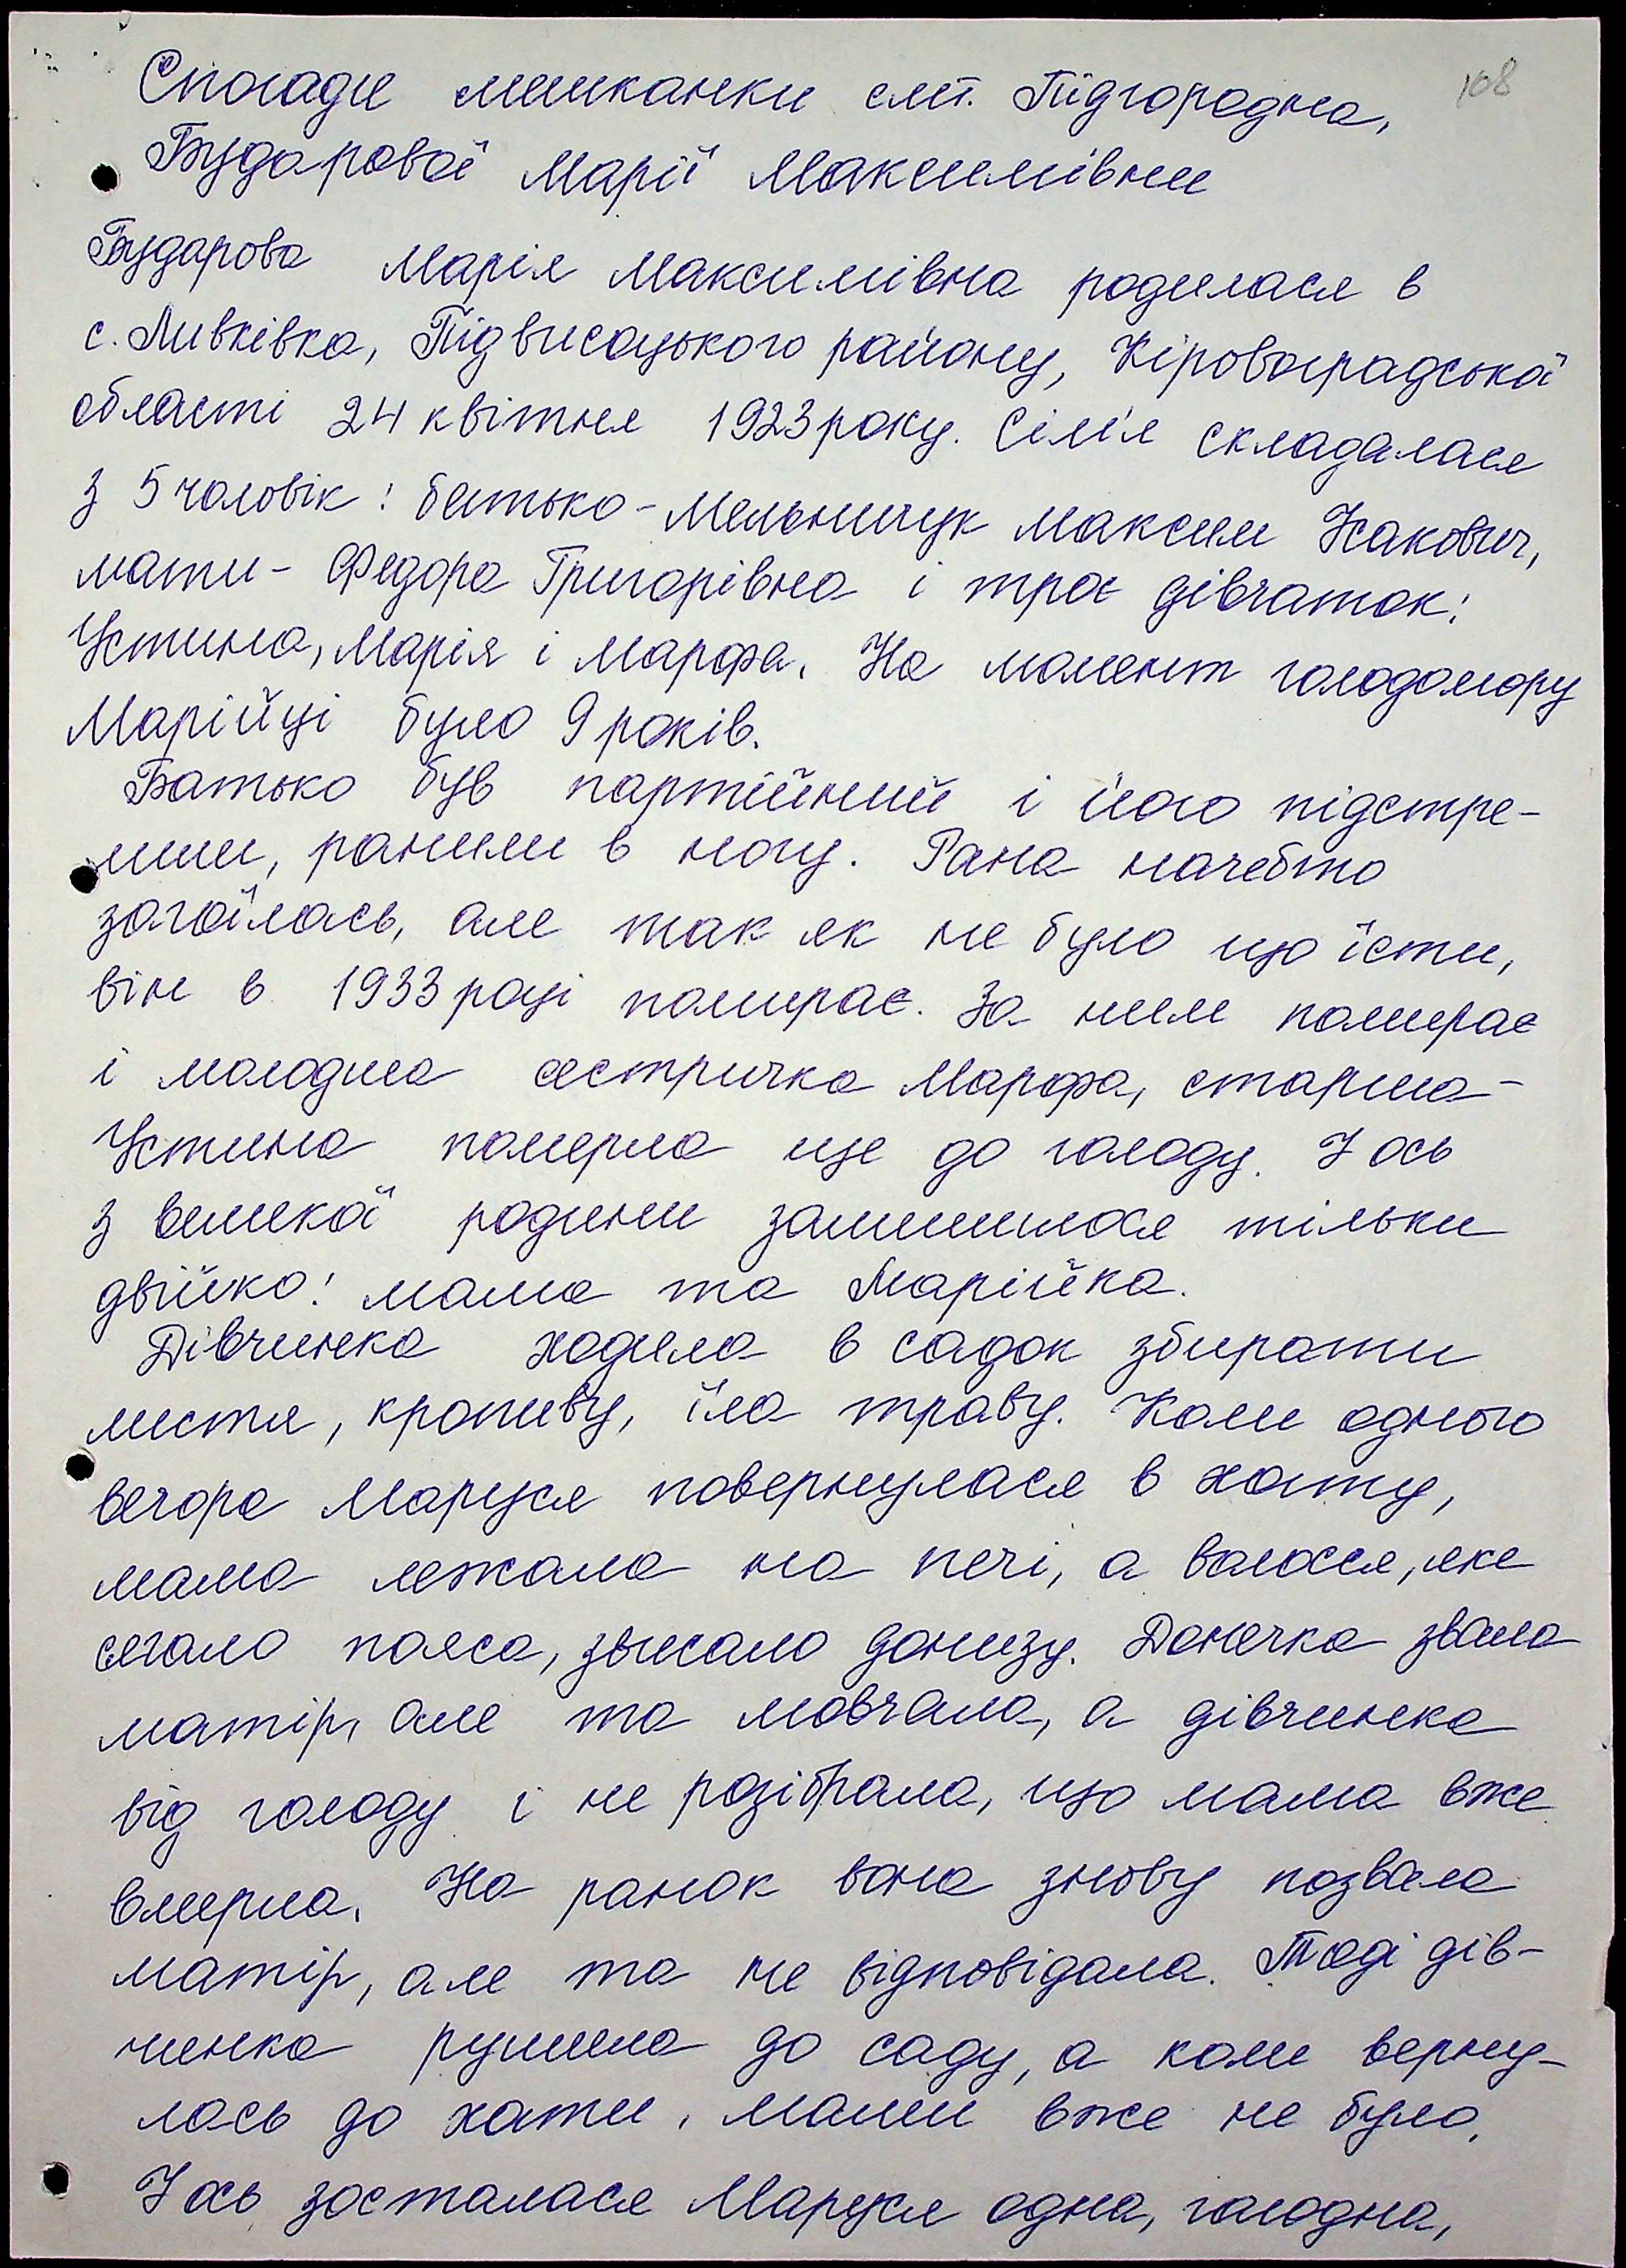 108
Спогади мешканки смт. Підгородна,
Бударової Марії Максимівни
Бударова Марія Максимівна родилася в
с. Левківка, Підвисоцького району, Кіровоградської
області 24 квітня 1923 року. Сім'я складалася
з 5 чоловік: батько - Мельничук Максим Ісакович,
мати - Федора Григорівна і троє дівчаток:
Устина, Марія і Марфа. На момент голодомору
Марійці було 9 років.
Батько був партійний і його підстре-
лили, ранили в ногу. Рана начебто
загоїлась, але так як не було що їсти,
він в 1933 році помирає. За ним помирає
і молодша сестричка Марфа, старша -
Устина померла ще до голоду. І ось
з великої родини залишилося тільки
двійко: мама та Марійка.
Дівчинка ходила в садок збирати
листя, кропиву, їла траву. Коли одного
вечора Маруся повернулася в хату,
мама лежала на печі, а волосся, яке
сягало пояса, звисало донизу. Донечка звала
матір, але та мовчала, а дівчинка
від голоду і не розібрала, що мама вже
вмерла. На ранок вона знову позвала
матір, але та не відповідала. Тоді дів-
чинка рушила до саду, а коли верну-
лась до хати, мами вже не було.
І ось зосталася Маруся одна, голодна,